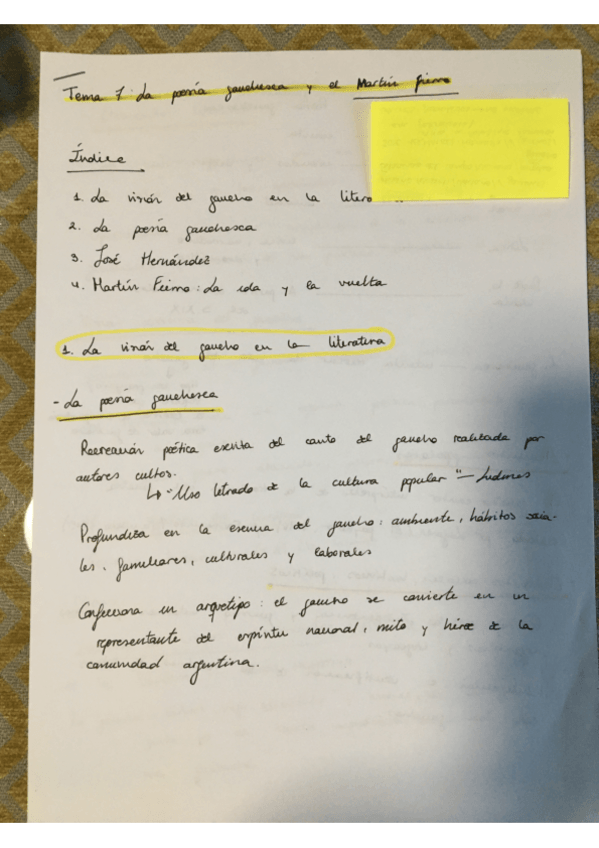 Tema 7: La poesía gauchesca y el Martín Fierro
Índice
1. La visión del gaucho en la litera
2. La poesía gauchesca
3. José Hernández
4. Martín Fierro: La ida y la vuelta
1. La visión del gaucho en la literatura
- La poesía gauchesca
Recreación poética escrita del canto del gaucho realizada por
autores cultos.
↳ "Uso letrado de la cultura popular" – Ludmer
Profundiza en la esencia del gaucho: ambiente, hábitos socia-
les, familiares, culturales y laborales
Confecciona un arquetipo: el gaucho se convierte en un
representante del espíritu nacional, mito y héroe de la
comunidad argentina.